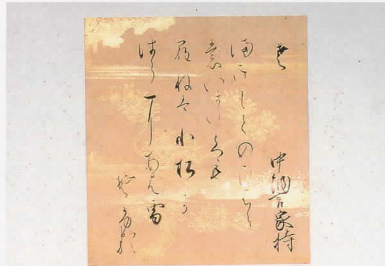 春
中納言家持
まきもくのひはら
のいまたくも
らねは小松か
はらにあは雪
そふる